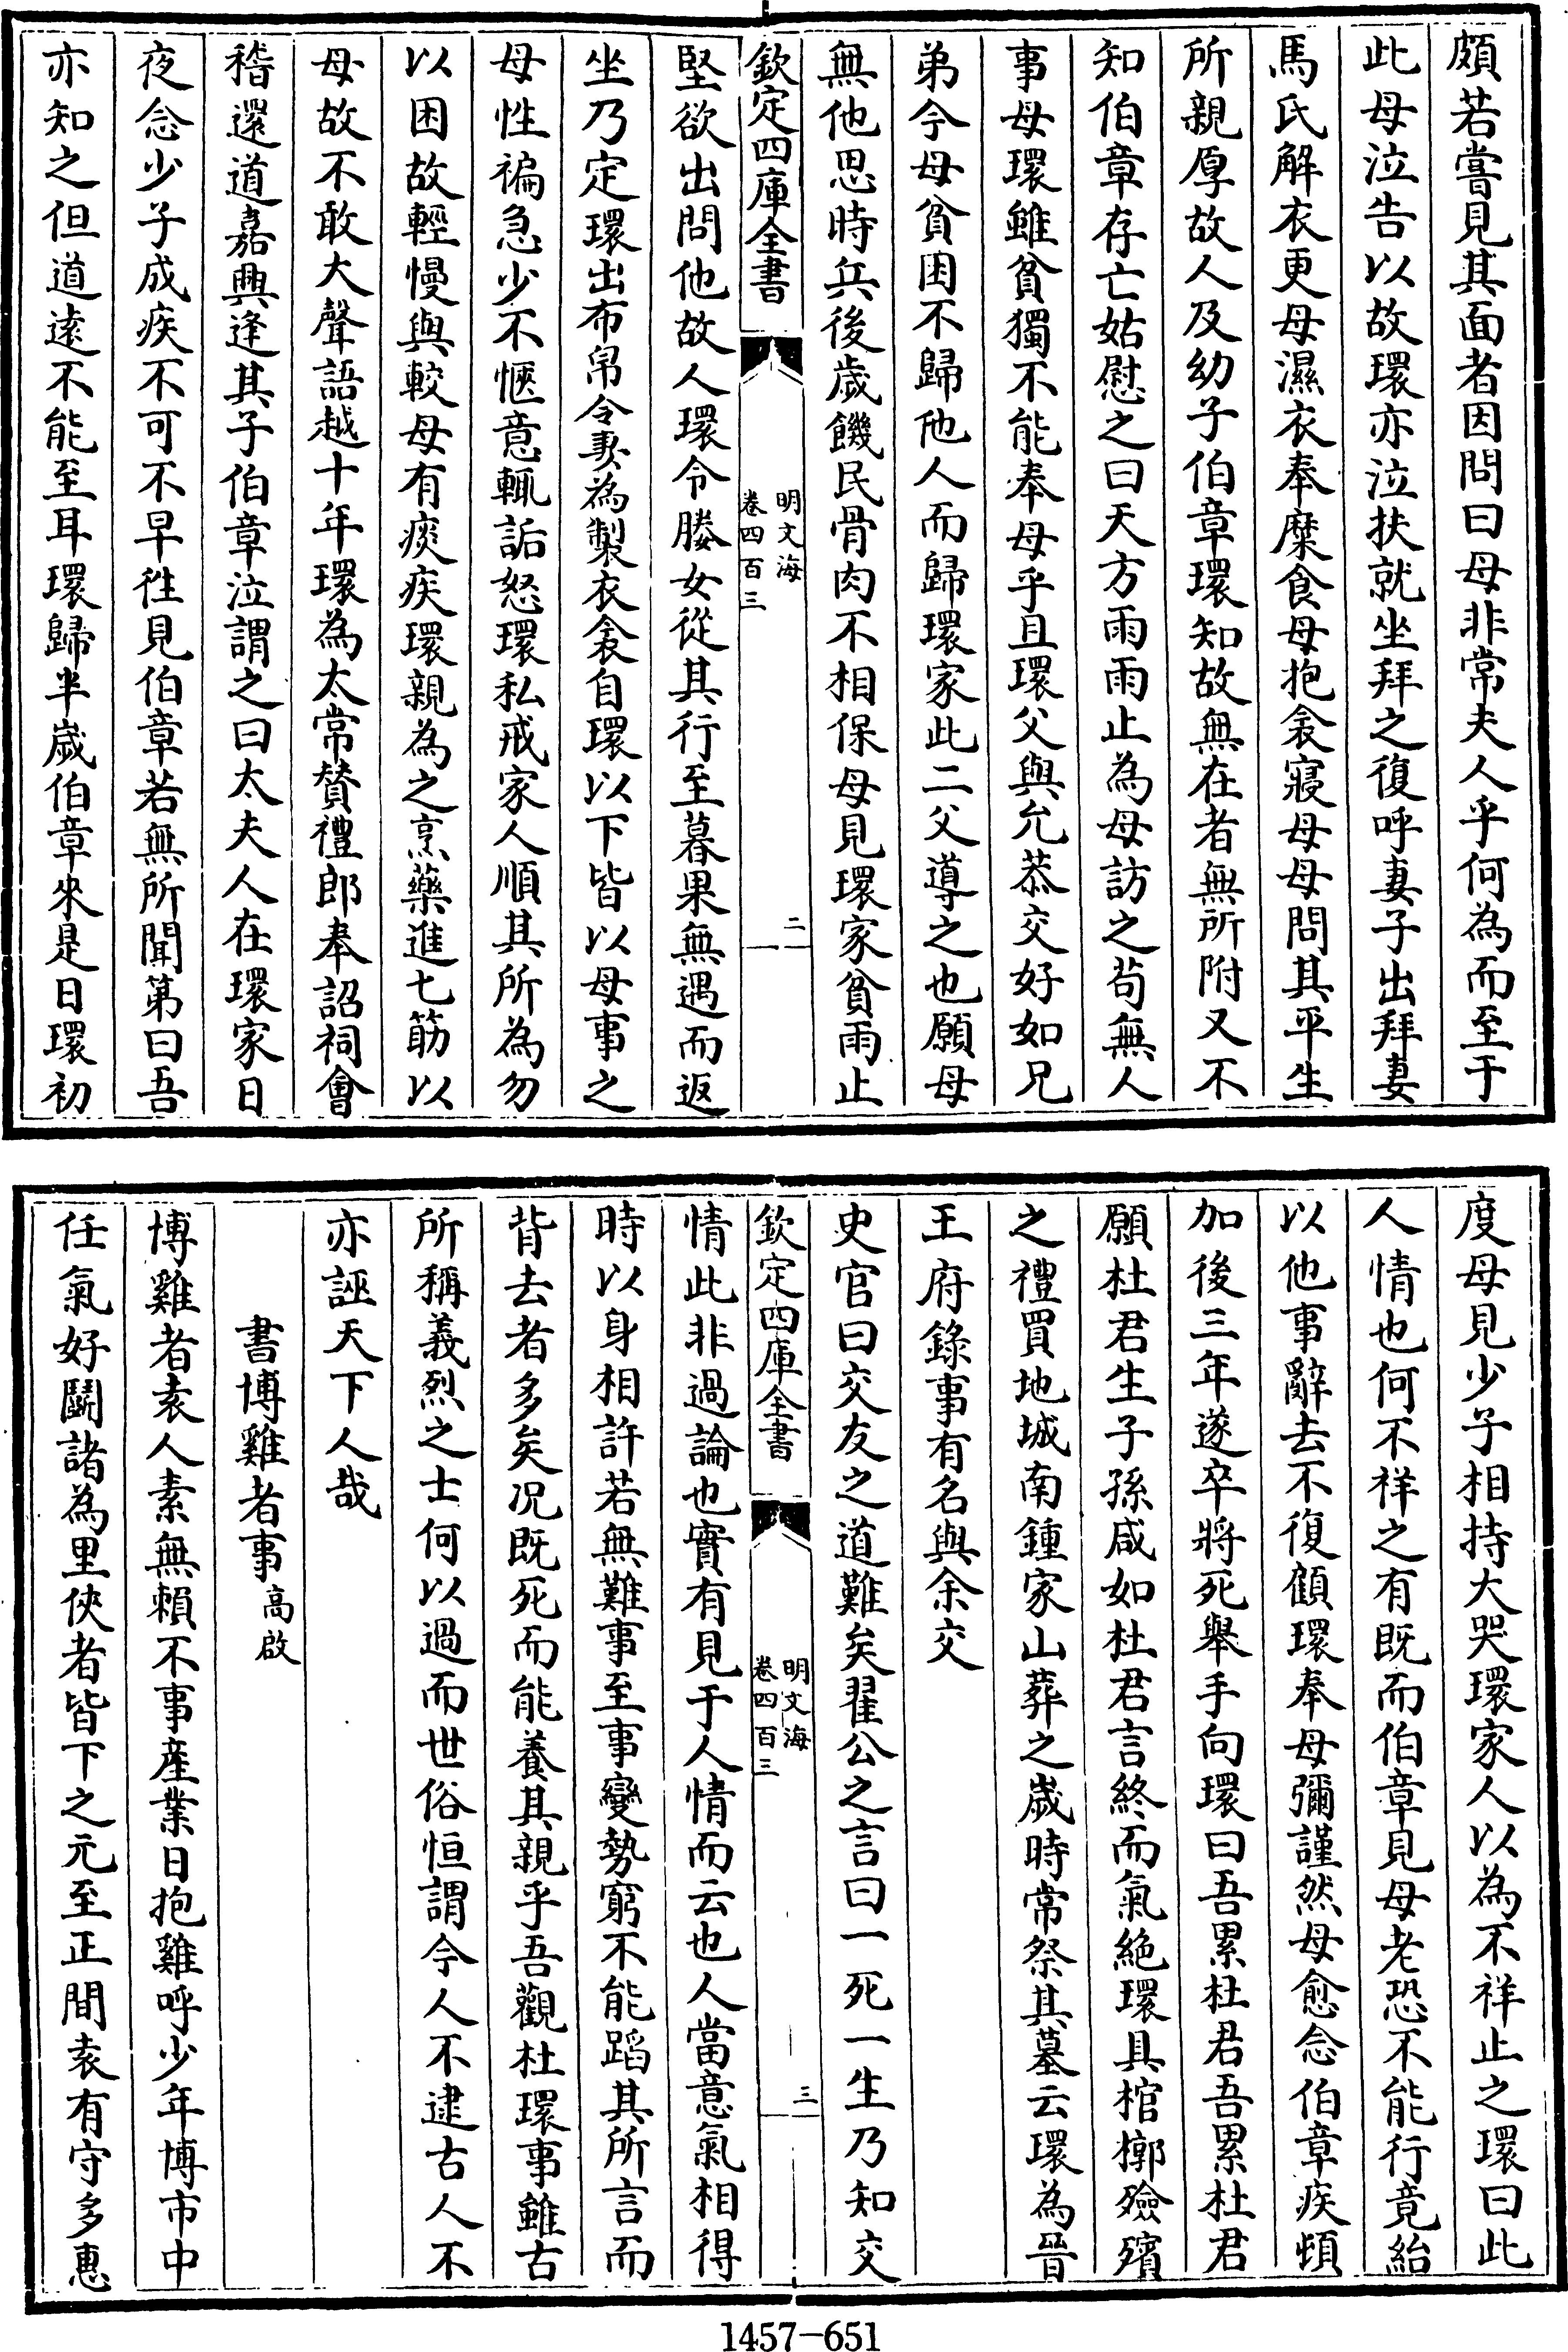 頗若嘗見其面者因問曰母非常夫人乎何為而至于
此母泣告以故環亦泣扶就坐拜之復呼妻子出拜妻
馬氏解衣更母濕衣奉糜食母抱衾寢母母問其平生
所親厚故人及幼子伯章環知故無在者無所附又不
知伯章存亡姑慰之曰天方雨雨止為母訪之苟無人
事母環雖貧獨不能奉母乎且環父與允恭交好如兄
弟今母貧困不歸他人而歸環家此二父導之也願母
無他思時兵後歲饑民骨肉不相保母見環家貧雨止
欽定四庫全書
明文海
卷四百三
二
堅欲出問他故人環令媵女從其行至暮果無遇而返
坐乃定環出布帛令妻為製衣衾自環以下皆以母事之
母性褊急少不愜意輒詬怒環私戒家人順其所為勿
以困故輕慢與較母有痰疾環親為之烹藥進七筯以
母故不敢大聲語越十年環為太常贊禮郎奉詔祠會
稽還道嘉興逢其子伯章泣謂之曰太夫人在環家日
夜念少子成疾不可不早徃見伯章若無所聞第曰吾
亦知之但道逺不能至耳環歸半嵗伯章來是日環初
度母見少子相持大哭環家人以為不祥止之環曰此
人情也何不祥之有既而伯章見母老恐不能行竟紿
以他事辭去不復顧環奉母彌謹然母愈念伯章疾頓
加後三年遂卒將死舉手向環曰吾累杜君吾累杜君
願杜君生子孫咸如杜君言終而氣絶環具棺槨殮殯
之禮買地城南鍾家山葬之嵗時常祭其墓云環為晉
王府錄事有名與余交
史官曰交友之道難矣翟公之言曰一死一生乃知交
欽定四庫全書
明文海
卷四百三
三
情此非過論也實有見于人情而云也人當意氣相得
時以身相許若無難事至事變勢窮不能蹈其所言而
背去者多矣况既死而能養其親乎吾觀杜環事雖古
所稱義烈之士何以過而世俗恒謂今人不逮古人不
亦誣天下人哉
書博雞者事高啟
博雞者袁人素無賴不事產業日抱雞呼少年博市中
任氣好鬭諸為里俠者皆下之元至正間袁有守多惠
1457-651